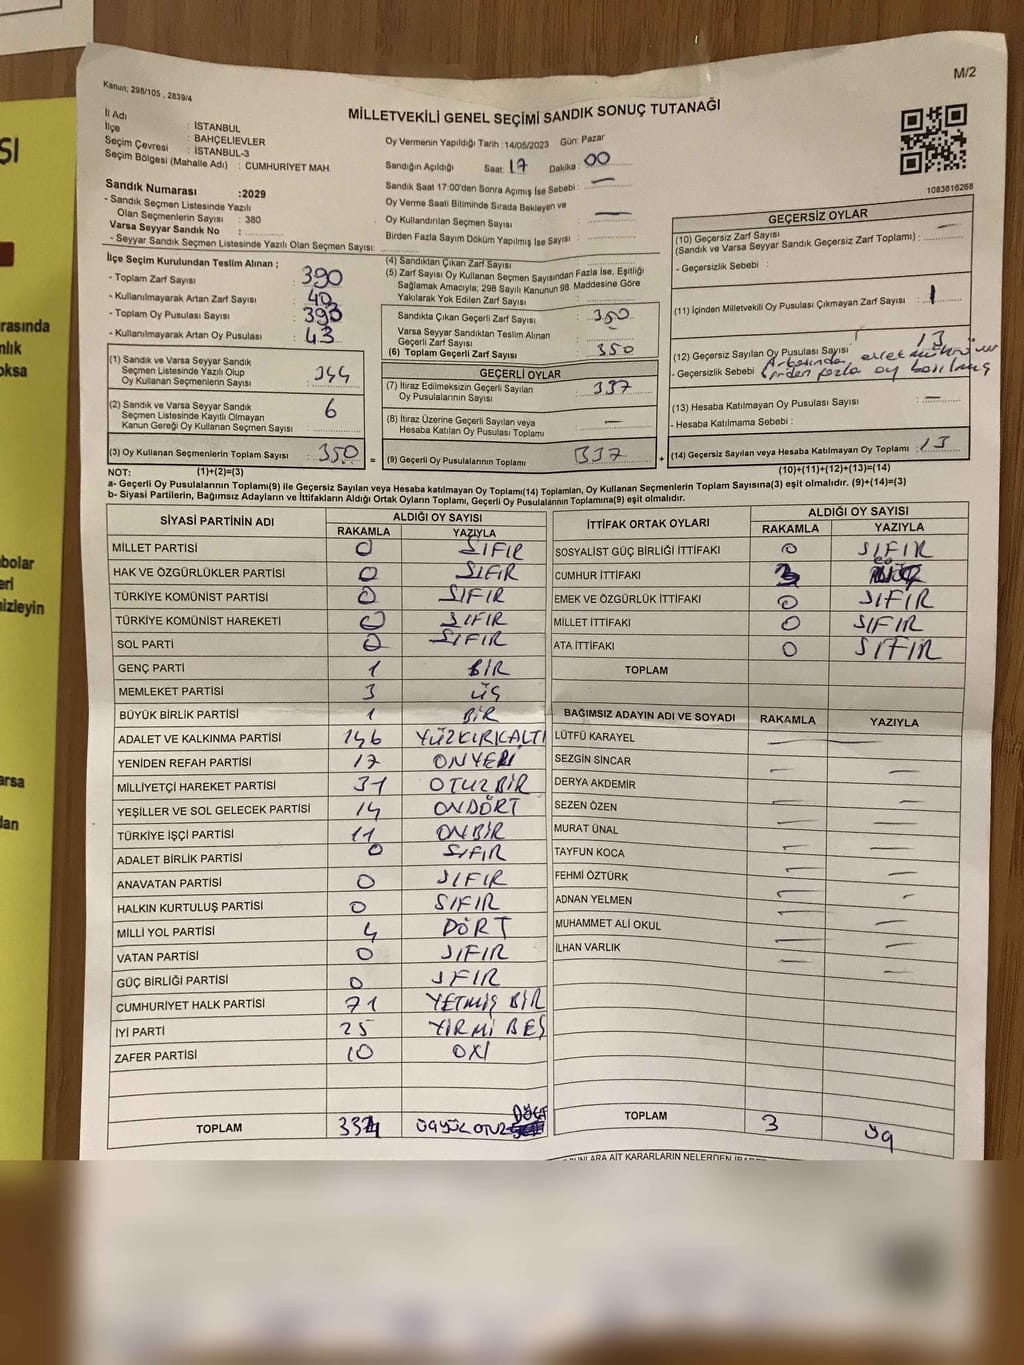 M/2
Kanun; 298/105 , 2839/4
MİLLETVEKİLİ GENEL SEÇİMİ SANDIK SONUÇ TUTANAĞI
İl Adı : İSTANBUL
İlçe : BAHÇELİEVLER
Seçim Çevresi : İSTANBUL-3
Seçim Bölgesi (Mahalle Adı) : CUMHURİYET MAH.
Sandık Numarası :2029
- Sandık Seçmen Listesinde Yazılı
Olan Seçmenlerin Sayısı : 380
Varsa Seyyar Sandık No :
- Seyyar Sandık Seçmen Listesinde Yazılı Olan Seçmen Sayısı:
Oy Vermenin Yapıldığı Tarih : 14/05/2023 Gün: Pazar
Sandığın Açıldığı Saat: 17 Dakika : 00
Sandık Saat 17:00'den Sonra Açımış İse Sebebi : —
Oy Verme Saati Bitiminde Sırada Bekleyen ve
Oy Kullandırılan Seçmen Sayısı : —
Birden Fazla Sayım Döküm Yapılmış İse Sayısı :
1083616268
İlçe Seçim Kurulundan Teslim Alınan ;
- Toplam Zarf Sayısı : 390
- Kullanılmayarak Artan Zarf Sayısı : 40
- Toplam Oy Pusulası Sayısı : 390
- Kullanılmayarak Artan Oy Pusulası : 43
(1) Sandık ve Varsa Seyyar Sandık
Seçmen Listesinde Yazılı Olup
Oy Kullanan Seçmenlerin Sayısı : 344
(2) Sandık ve Varsa Seyyar Sandık
Seçmen Listesinde Kayıtlı Olmayan
Kanun Gereği Oy Kullanan Seçmen Sayısı : 6
(3) Oy Kullanan Seçmenlerin Toplam Sayısı : 350
(4) Sandıktan Çıkan Zarf Sayısı :
(5) Zarf Sayısı Oy Kullanan Seçmen Sayısından Fazla İse, Eşitliği
Sağlamak Amacıyla; 298 Sayılı Kanunun 98. Maddesine Göre
Yakılarak Yok Edilen Zarf Sayısı :
Sandıkta Çıkan Geçerli Zarf Sayısı : 350
Varsa Seyyar Sandıktan Teslim Alınan
Geçerli Zarf Sayısı :
(6) Toplam Geçerli Zarf Sayısı : 350
GEÇERLİ OYLAR
(7) İtiraz Edilmeksizin Geçerli Sayılan
Oy Pusulalarının Sayısı : 337
(8) İtiraz Üzerine Geçerli Sayılan veya
Hesaba Katılan Oy Pusulası Toplamı : —
= (9) Geçerli Oy Pusulalarının Toplamı : 337
GEÇERSİZ OYLAR
(10) Geçersiz Zarf Sayısı
(Sandık ve Varsa Seyyar Sandık Geçersiz Zarf Toplamı) : —
- Geçersizlik Sebebi :
(11) İçinden Milletvekili Oy Pusulası Çıkmayan Zarf Sayısı : 1
(12) Geçersiz Sayılan Oy Pusulası Sayısı : 13
- Geçersizlik Sebebi : Arkasında evet mührü
birden fazla oy basılmış
(13) Hesaba Katılmayan Oy Pusulası Sayısı : —
- Hesaba Katılmama Sebebi :
+ (14) Geçersiz Sayılan veya Hesaba Katılmayan Oy Toplamı : 13
NOT: (1)+(2)=(3)
(10)+(11)+(12)+(13)=(14)
a- Geçerli Oy Pusulasının Toplamı(9) ile Geçersiz Sayılan veya Hesaba katılmayan Oy Toplamı(14) Toplamları, Oy Kullanan Seçmenlerin Toplam Sayısına(3) eşit olmalıdır. (9)+(14)=(3)
b- Siyasi Partilerin, Bağımsız Adayların ve İttifakların Aldığı Ortak Oyların Toplamı, Geçerli Oy Pusulalarının Toplamına(9) eşit olmalıdır.
SİYASİ PARTİNİN ADI ALDIĞI OY SAYISI
RAKAMLA YAZIYLA
MİLLET PARTİSİ 0 SIFIR
HAK VE ÖZGÜRLÜKLER PARTİSİ 0 SIFIR
TÜRKİYE KOMÜNİST PARTİSİ 0 SIFIR
TÜRKİYE KOMÜNİST HAREKETİ 0 SIFIR
SOL PARTİ 0 SIFIR
GENÇ PARTİ 1 BİR
MEMLEKET PARTİSİ 3 ÜÇ
BÜYÜK BİRLİK PARTİSİ 1 BİR
ADALET VE KALKINMA PARTİSİ 146 YÜZKIRKALTI
YENİDEN REFAH PARTİSİ 17 ONYEDİ
MİLLİYETÇİ HAREKET PARTİSİ 31 OTUZBİR
YEŞİLLER VE SOL GELECEK PARTİSİ 14 ONDÖRT
TÜRKİYE İŞÇİ PARTİSİ 11 ONBİR
ADALET BİRLİK PARTİSİ 0 SIFIR
ANAVATAN PARTİSİ 0 SIFIR
HALKIN KURTULUŞ PARTİSİ 0 SIFIR
MİLLİ YOL PARTİSİ 4 DÖRT
VATAN PARTİSİ 0 SIFIR
GÜÇ BİRLİĞİ PARTİSİ 0 SIFIR
CUMHURİYET HALK PARTİSİ 71 YETMİŞ BİR
İYİ PARTİ 25 YİRMİ BEŞ
ZAFER PARTİSİ 10 ON
TOPLAM 334 ÜÇYÜZ OTUZ DÖRT
İTTİFAK ORTAK OYLARI ALDIĞI OY SAYISI
RAKAMLA YAZIYLA
SOSYALİST GÜÇ BİRLİĞİ İTTİFAKI 0 SIFIR
CUMHUR İTTİFAKI 3
EMEK VE ÖZGÜRLÜK İTTİFAKI 0 SIFIR
MİLLET İTTİFAKI 0 SIFIR
ATA İTTİFAKI 0 SIFIR
TOPLAM
BAĞIMSIZ ADAYIN ADI VE SOYADI RAKAMLA YAZIYLA
LÜTFÜ KARAYEL —
SEZGİN SİNCAR — —
DERYA AKDEMİR — —
SEZEN ÖZEN — —
MURAT ÜNAL — —
TAYFUN KOCA — —
FEHMİ ÖZTÜRK — —
ADNAN YELMEN — —
MUHAMMET ALİ OKUL — —
İLHAN VARLIK — —
TOPLAM 3 üç